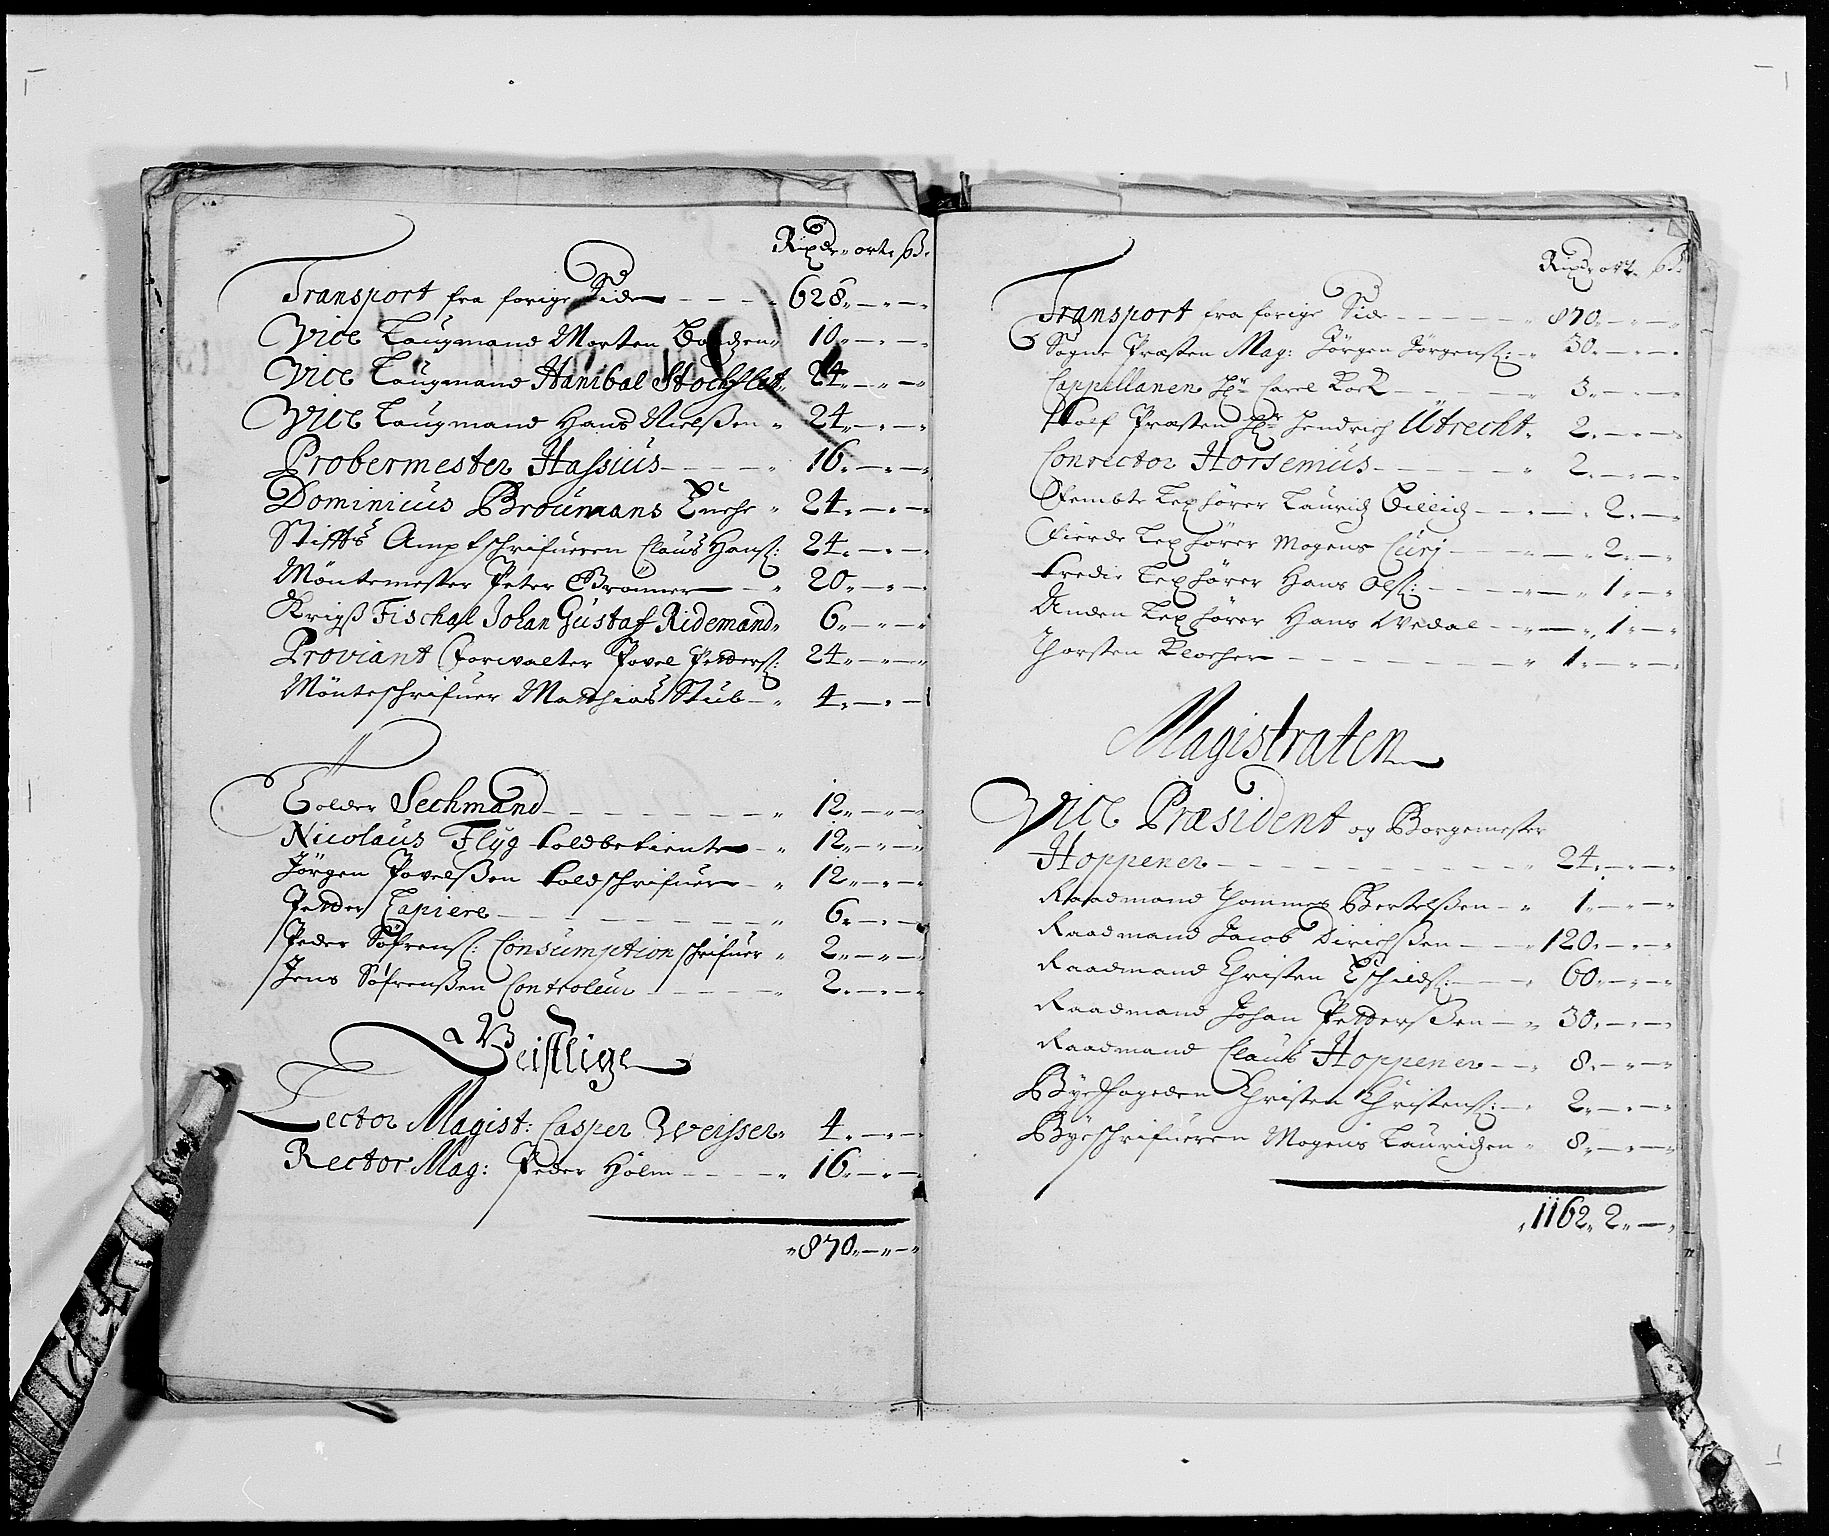 Rixdr orte ß
Transport fra forige Side 628
Vice Laugmand Morten 10
Vice Laugmand Hanibal Stochflet 24
Vice Laugmand Hans Nielßen 24
Probermester Hassius 16
Dominicus Broumans Encke 24
Stiffts Amptschrifueren Claus Hanß: 24
Möntemester Peter Brönner 20
Krigß Fischall Johan Gustaf Ridemand 6
Proviant Forwalter Povel Pedderß: 24
Mönteschrifuer Matthias Stub 4
Tolder Sechmand 12
Nicolaus Flyg toldbetiente 12
Jörgen Povelßen toldschrifuer 12
Pedder Tapiere 6
Peder Söfrenß: Consumption schrifuer 2
Jens Söfrenßen Controleur 2
Geistlige
Lector Magist: Casper Weisser 4
Rector Mag: Peder Hölm 16
870
Rixdr ort ß
Transport fra forige Side 870
Sogne Præsten Mag: Jörgen Jörgenß: 30
Cappellanen Hr Carel 3
Præsten Hr Hendrich Utrecht 2
Conrector Horsemius 2
Fembte Lexhörer Lauridz Billid 2
Fierde Lexhörer Mogens Curj 2
tredie Lexhörer Hans Olß: 1
Anden Lexhörer Hans Wedal 1
Thorsten Klocher 1
Magistraten
Vice Præsident og Borgemester
Hoppener 24
Raadmand Thommes Bertelßen 1
Raadmand Jacob Dirichßen 120
Raadmand Christen Eschildß: 60
Raadmand Johan Pedderßen 30
Raadmand Claus Hoppener 8
Byefogeden Christen Christenß: 2
Byeschrifueren Mogens Lauridzen 8
1162 2